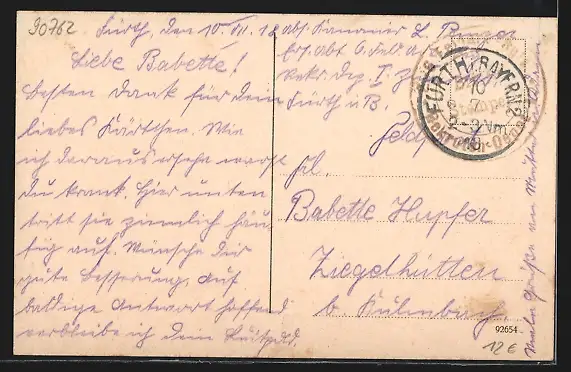 90762
Fürth, den 10.VII.18
Liebe Babette!
Besten Dank für Dein
liebes Kärtchen. Wie
ich daraus ersehe warst
du krank. Hier unten
tritt sie ziemlich häu-
fig auf. Wünsche Dir
gute Besserung, auf
baldige Antwort hoffend
verbleibe ich dein
Abs. Kanonier L.
Ers. Abt. 6. Feld a.
Rekr. Dep. I.
Fürth i/B.
FÜRTH (BAYERN) 2
10
7
Nm
18
Frl.
Babette Hupfer
Ziegelhütten
b. Kulmbach.
92654
12€
Viele Grüße